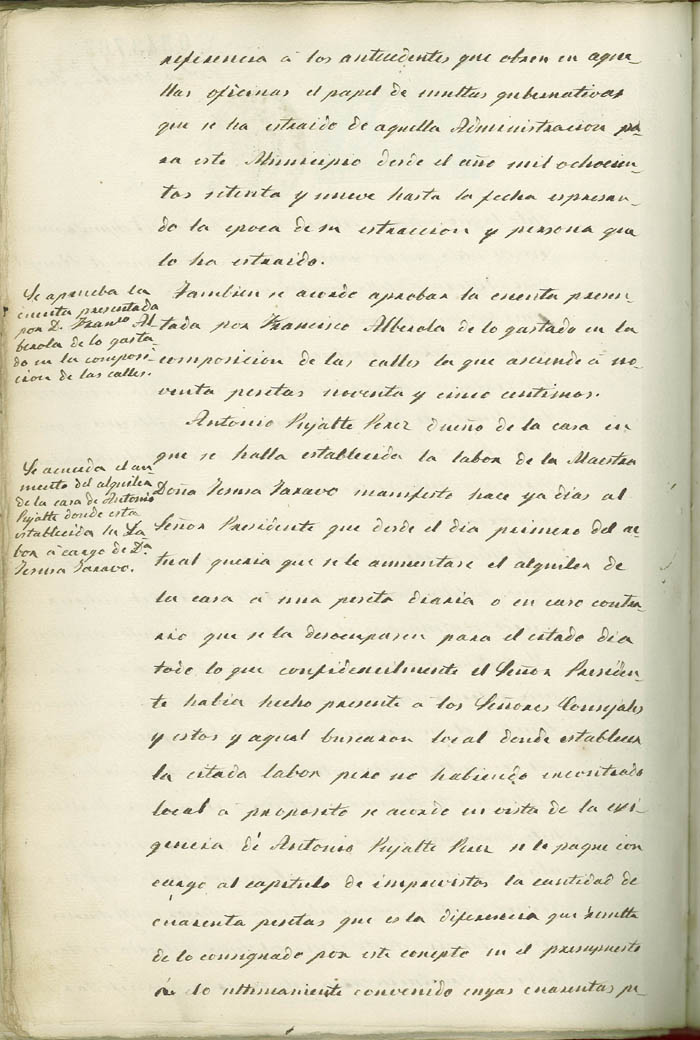 referencia á los antecedentes que obren en aque-
llas oficinas el papel de multas gubernativas
que se ha estraido de aquella Administracion pa-
ra este Municipio desde el año mil ochocien-
tos setenta y nueve hasta la fecha espresan-
do la epoca de su estraccion y persona que
lo ha estraido.
Se aprueba la
cuenta presentada
por D. Franco Al
berola de lo gasta-
do en la composi-
cion de las calles.
Tambien se acordo aprobar la cuenta presen-
tada por Francisco Alberola de lo gastado en la
composicion de las calles la que asciende á no-
venta pesetas noventa y cinco centimos.
Se acuerda el au-
mento del alquiler
de la casa de Antonio
Pujalte donde esta
establecida la La-
bor á cargo de Da
Teresa Taravo.
Antonio Pujalte Perez dueño de la casa en
que se halla establecida la labor de la Maestra
Doña Teresa Taravo manifesto hace ya dias al
Señor Presidente que desde el dia primero del ac-
tual queria que se le aumentase el alquiler de
la casa á una peseta diaria o en caso contra-
rio que se la desocupasen para el citado dia
todo lo que confidencilmente el Señor Presiden-
te habia hecho presente á los Señores Consejales
y estos y aquel buscaron local donde establecer
la citada labor pero no habiendo encontrado
local á proposito se acordo en vista de la exi-
gencia de Antonio Pujalte Perez se le pague con
cargo al capitulo de imprevistos la cantidad de
cuarenta pesetas que es la diferencia que resulta
de lo consignado por este concepto en el presupuesto
á lo ultimamente convenido cuyas cuarentas pe-